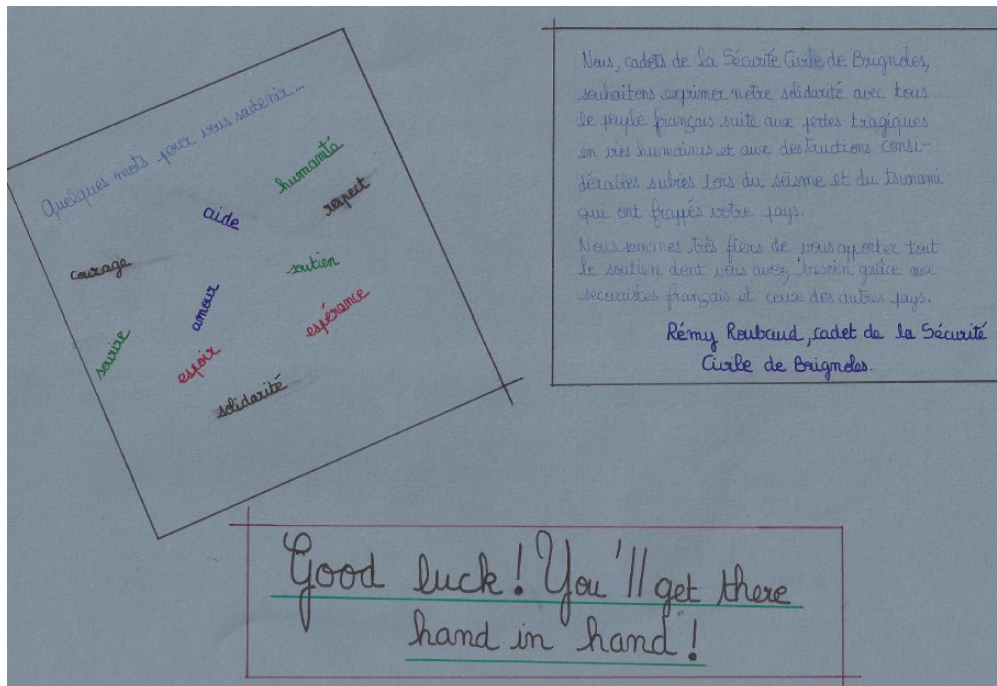 Quelques mots pour vous soutenir...
humanité
respect
aide
courage
soutien
amour
espérance
sourire
espoir
solidarité
Nous, cadets de la Sécurité Civile de Brignoles,
souhaitons exprimer notre solidarité avec tous
le peuple français suite aux pertes tragiques
en vies humaines et aux destructions consi-
dérables subies lors du séisme et du tsunami
qui ont frappés votre pays.
Nous sommes très fiers de vous apporter tout
le soutien dont vous avez besoin grâce aux
secouristes français et ceux des autres pays.
Rémy Roubaud, cadet de la Sécurité
Civile de Brignoles.
Good luck! You'll get there
hand in hand!